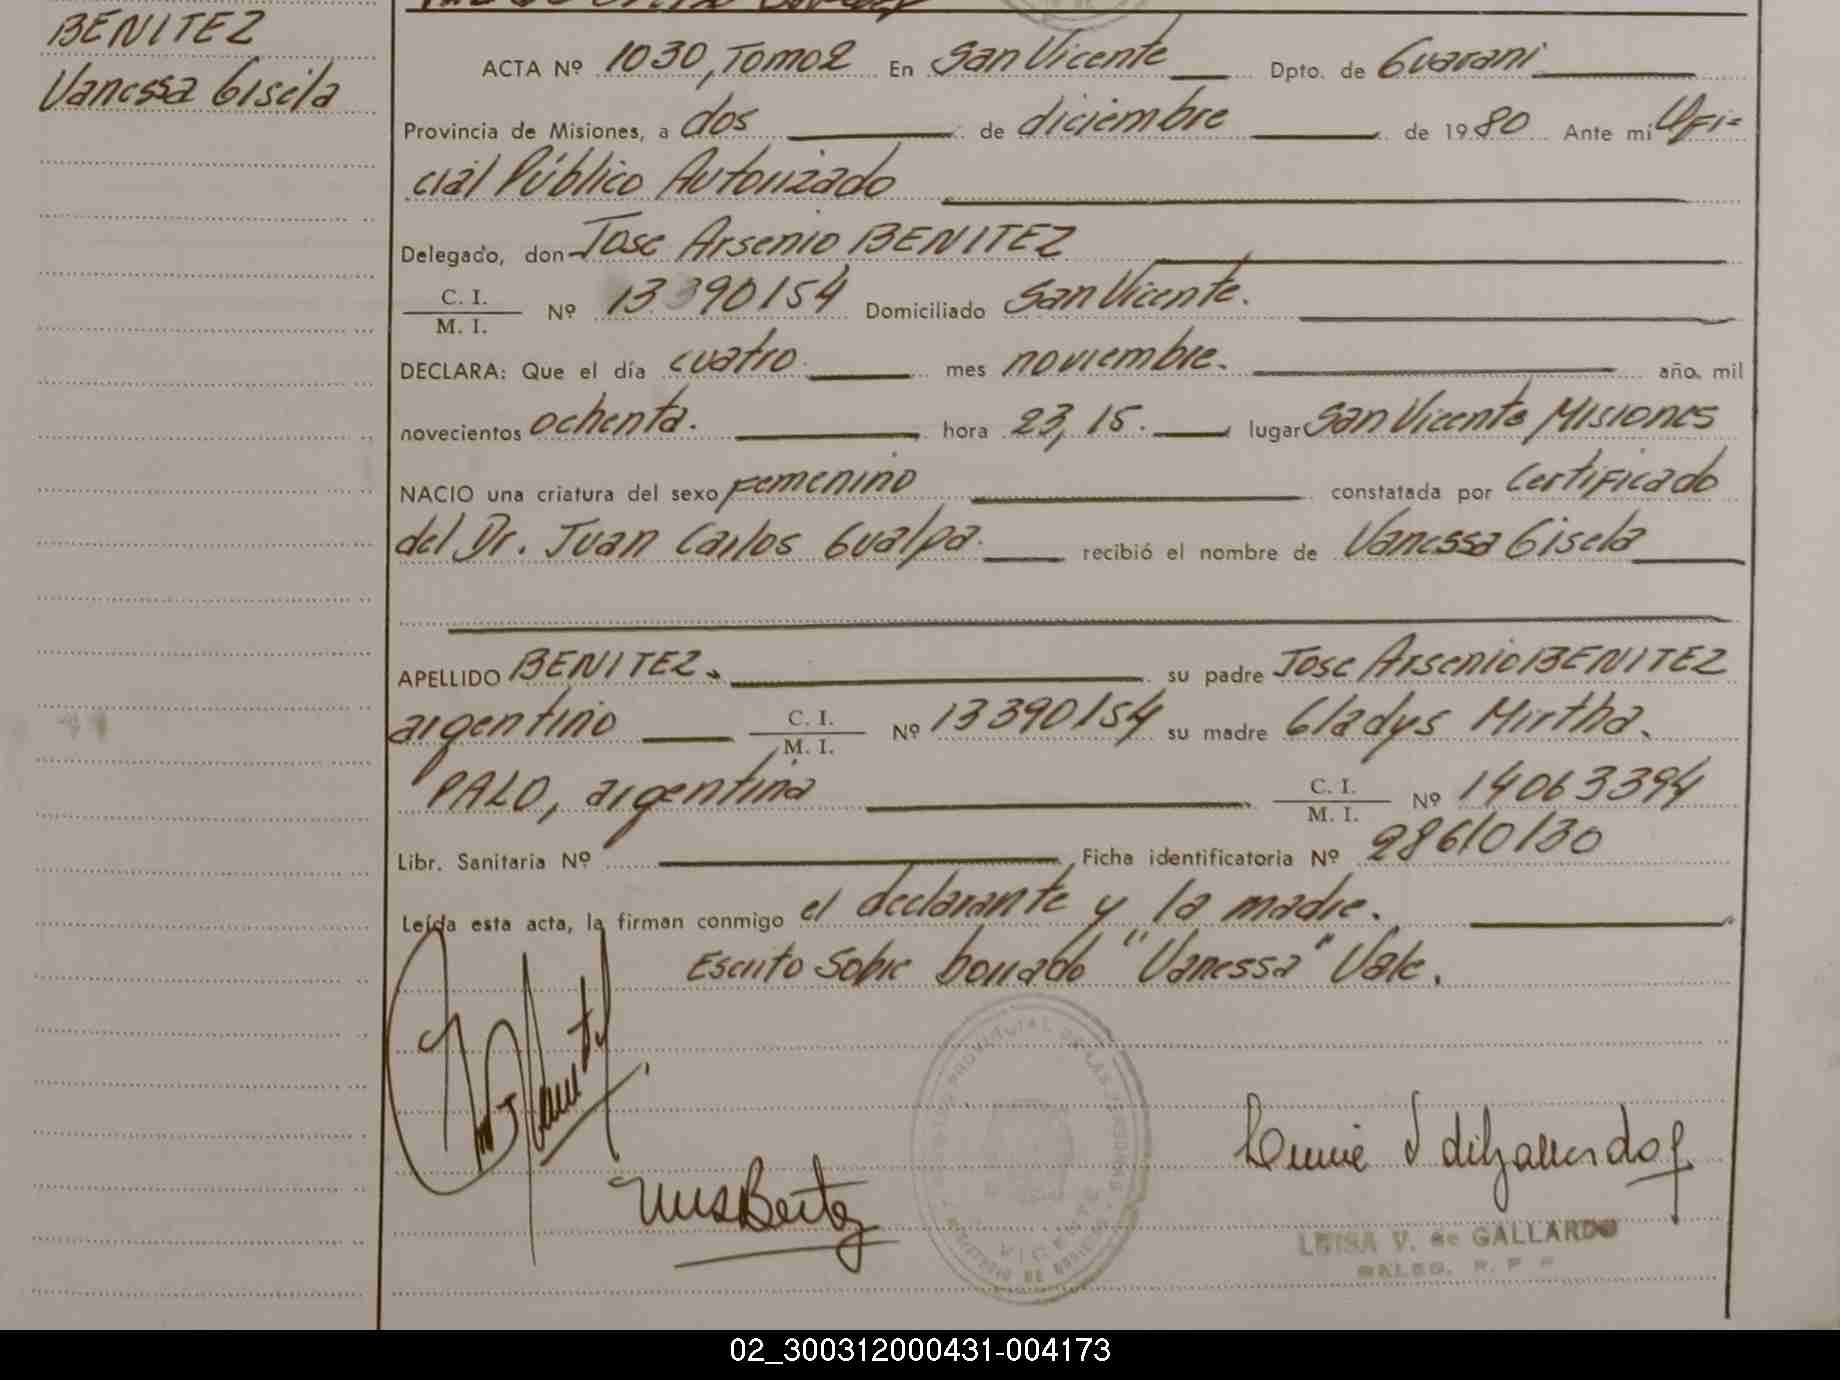 BENITEZ
Vanessa Gisela
ACTA Nº 1030, Tomo 2 En San Vicente Dpto. de Guarani
Provincia de Misiones, a dos de diciembre de 1980 Ante mi Ofi=
cial Público Autorizado
Delegado, don Jose Arsenio BENITEZ
C. I.
M. I. Nº 13390154 Domiciliado San Vicente.
DECLARA: Que el día cuatro mes noviembre. año mil
novecientos ochenta. hora 23,15. lugar San Vicente Misiones
NACIO una criatura del sexo femenino constatada por Certificado
del Dr. Juan Carlos Gualpa. recibió el nombre de Vanessa Gisela
APELLIDO BENITEZ. su padre Jose Arsenio BENITEZ
argentino C. I. M. I. Nº 13390154 su madre Gladys Mirtha.
PALO, argentina C. I. M. I. Nº 14063394
Libr. Sanitaria Nº Ficha identificatoria Nº 28610130
Leída esta acta, la firman conmigo el declarante y la madre.
Escrito Sobre borrado "Vanessa" Vale.
VICENTE
LUISA V. de GALLARDO
02_300312000431-004173